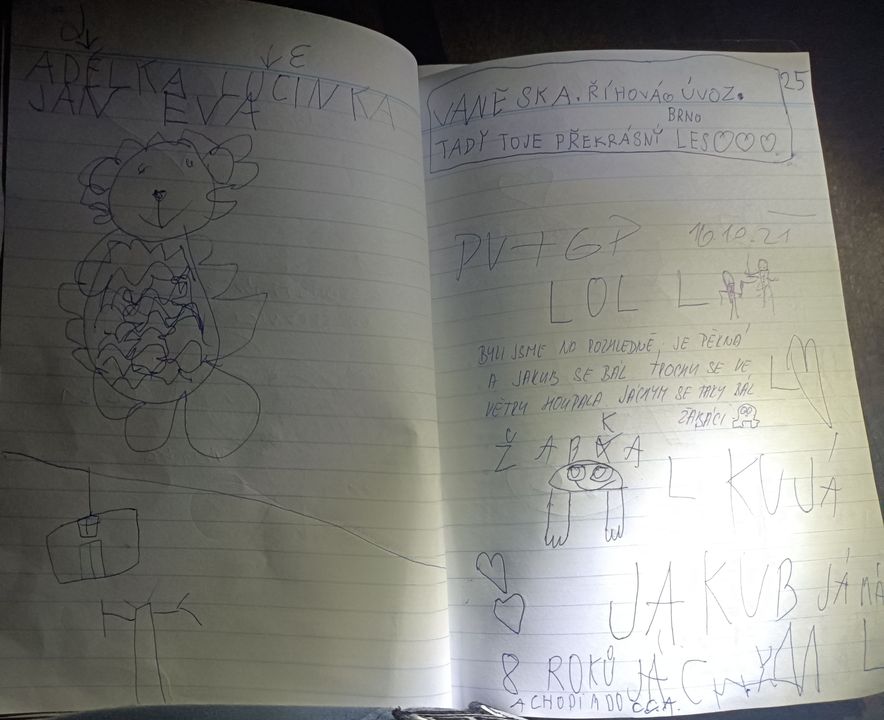 ADÉLKA LUCINKA
E
JAN EVA
VANĚSKA. ŘÍHOVÁ ÚVOZ.
25
BRNO
TADY TOJE PŘEKRÁSNÝ LES
PV+GP
16.10.21
LOL L
BYLI JSME NA ROZHLEDNĚ, JE PĚKNÁ
A JAKUB SE BÁL TROCHU SE VE
VĚTRU HOUPALA JÁCHYM SE TAKY BÁL
ŽABÁCI
L
K
ŽABKA
L KUJÁ
JAKUB JÁ MÁ
8 ROKŮ
L
A CHODÍM DO